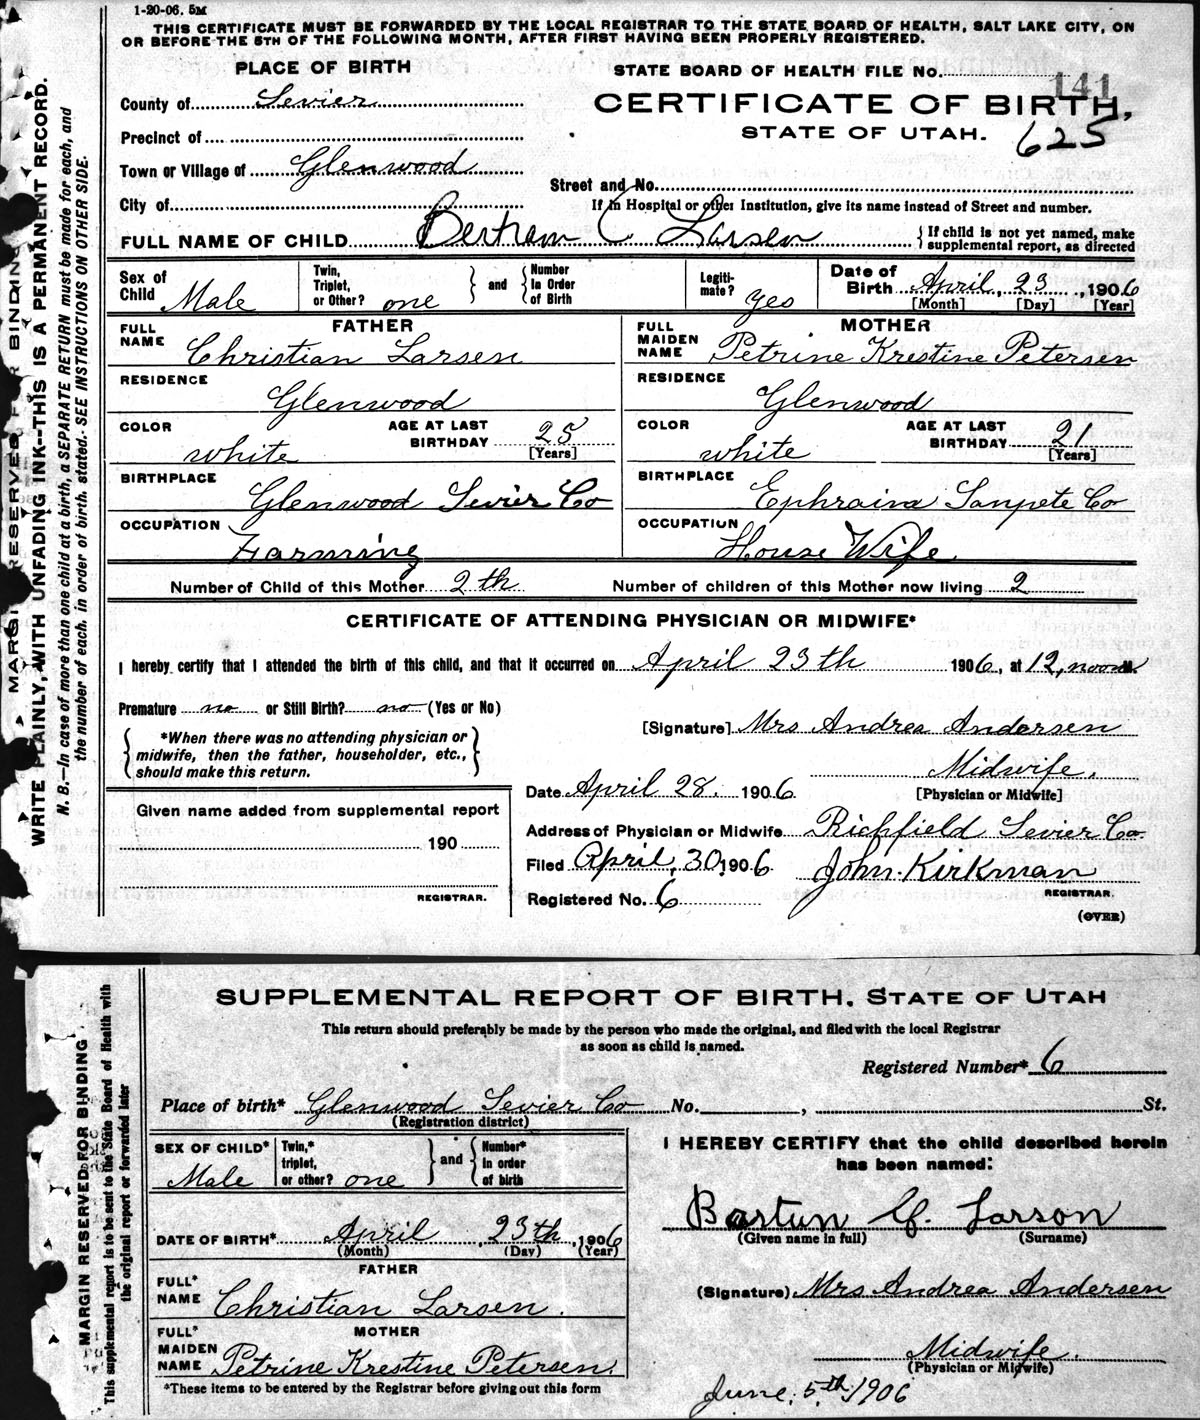 1-20-06. 5M
THIS CERTIFICATE MUST BE FORWARDED BY THE LOCAL REGISTRAR TO THE STATE BOARD OF HEALTH, SALT LAKE CITY, ON
OR BEFORE THE 5TH OF THE FOLLOWING MONTH, AFTER FIRST HAVING BEEN PROPERLY REGISTERED.
MARGIN RESERVED FOR BINDING
WRITE PLAINLY, WITH UNFADING INK--THIS IS A PERMANENT RECORD.
N. B.—In case of more than one child at a birth, a SEPARATE RETURN must be made for each, and
the number of each, in order of birth, stated. SEE INSTRUCTIONS ON OTHER SIDE.
PLACE OF BIRTH
STATE BOARD OF HEALTH FILE No. 141
County of Sevier
CERTIFICATE OF BIRTH,
STATE OF UTAH.
625
Precinct of
Town or Village of Glenwood
Street and No.
City of
If in Hospital or other Institution, give its name instead of Street and number.
FULL NAME OF CHILD Bertram C Larsen
If child is not yet named, make
supplemental report, as directed
Sex of Child Male
Twin, Triplet, or Other? one
and
Number In Order of Birth
Legiti-mate? yes
Date of Birth April, 23, 1906
[Month] [Day] [Year]
FATHER
FULL NAME Christian Larsen
RESIDENCE Glenwood
COLOR white
AGE AT LAST BIRTHDAY 25 [Years]
BIRTHPLACE Glenwood Sevier Co
OCCUPATION Farming
MOTHER
FULL MAIDEN NAME Petrine Krestine Petersen
RESIDENCE Glenwood
COLOR white
AGE AT LAST BIRTHDAY 21 [Years]
BIRTHPLACE Ephraim Sanpete Co
OCCUPATION House Wife
Number of Child of this Mother 2th
Number of children of this Mother now living 2
CERTIFICATE OF ATTENDING PHYSICIAN OR MIDWIFE*
I hereby certify that I attended the birth of this child, and that it occurred on April 23th 1906, at 12, noon M.
Premature no or Still Birth? no (Yes or No)
*When there was no attending physician or
midwife, then the father, householder, etc.,
should make this return.
[Signature] Mrs Andrea Andersen
Midwife.
[Physician or Midwife]
Date April 28. 1906
Given name added from supplemental report
190
REGISTRAR.
Address of Physician or Midwife Richfield Sevier Co.
Filed April, 30, 1906
John. Kirkman
REGISTRAR.
Registered No. 6
(OVER)
MARGIN RESERVED FOR BINDING
This supplemental report is to be sent to the State Board of Health with
the original report or forwarded later
SUPPLEMENTAL REPORT OF BIRTH, STATE OF UTAH
This return should preferably be made by the person who made the original, and filed with the local Registrar
as soon as child is named.
Registered Number* 6
Place of birth* Glenwood Sevier Co No. , St.
(Registration district)
SEX OF CHILD* Male
Twin,* triplet, or other? one
and
Number* in order of birth
DATE OF BIRTH* April, 23th, 1906
(Month) (Day) (Year)
FATHER
FULL* NAME Christian Larsen.
MOTHER
FULL* MAIDEN NAME Petrine Krestine Petersen.
*These items to be entered by the Registrar before giving out this form
I HEREBY CERTIFY that the child described herein
has been named:
Bartun C. Larson
(Given name in full) (Surname)
(Signature) Mrs Andrea Andersen
Midwife.
(Physician or Midwife)
June. 5th 1906